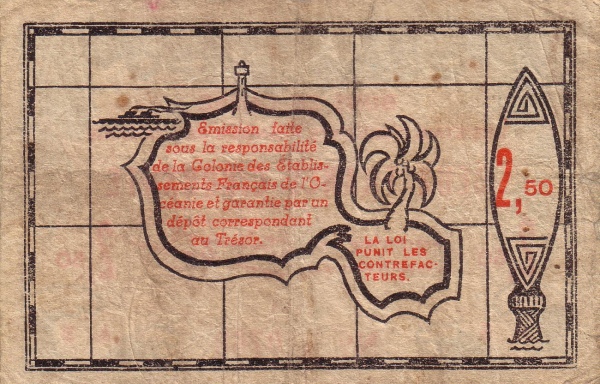 Emission faite
sous la responsabilité
de la Colonie des Établis-
sements Français de l'O-
céanie et garantie par un
dépôt correspondant
au Trésor.
LA LOI
PUNIT LES
CONTREFAC-
TEURS.
2,50